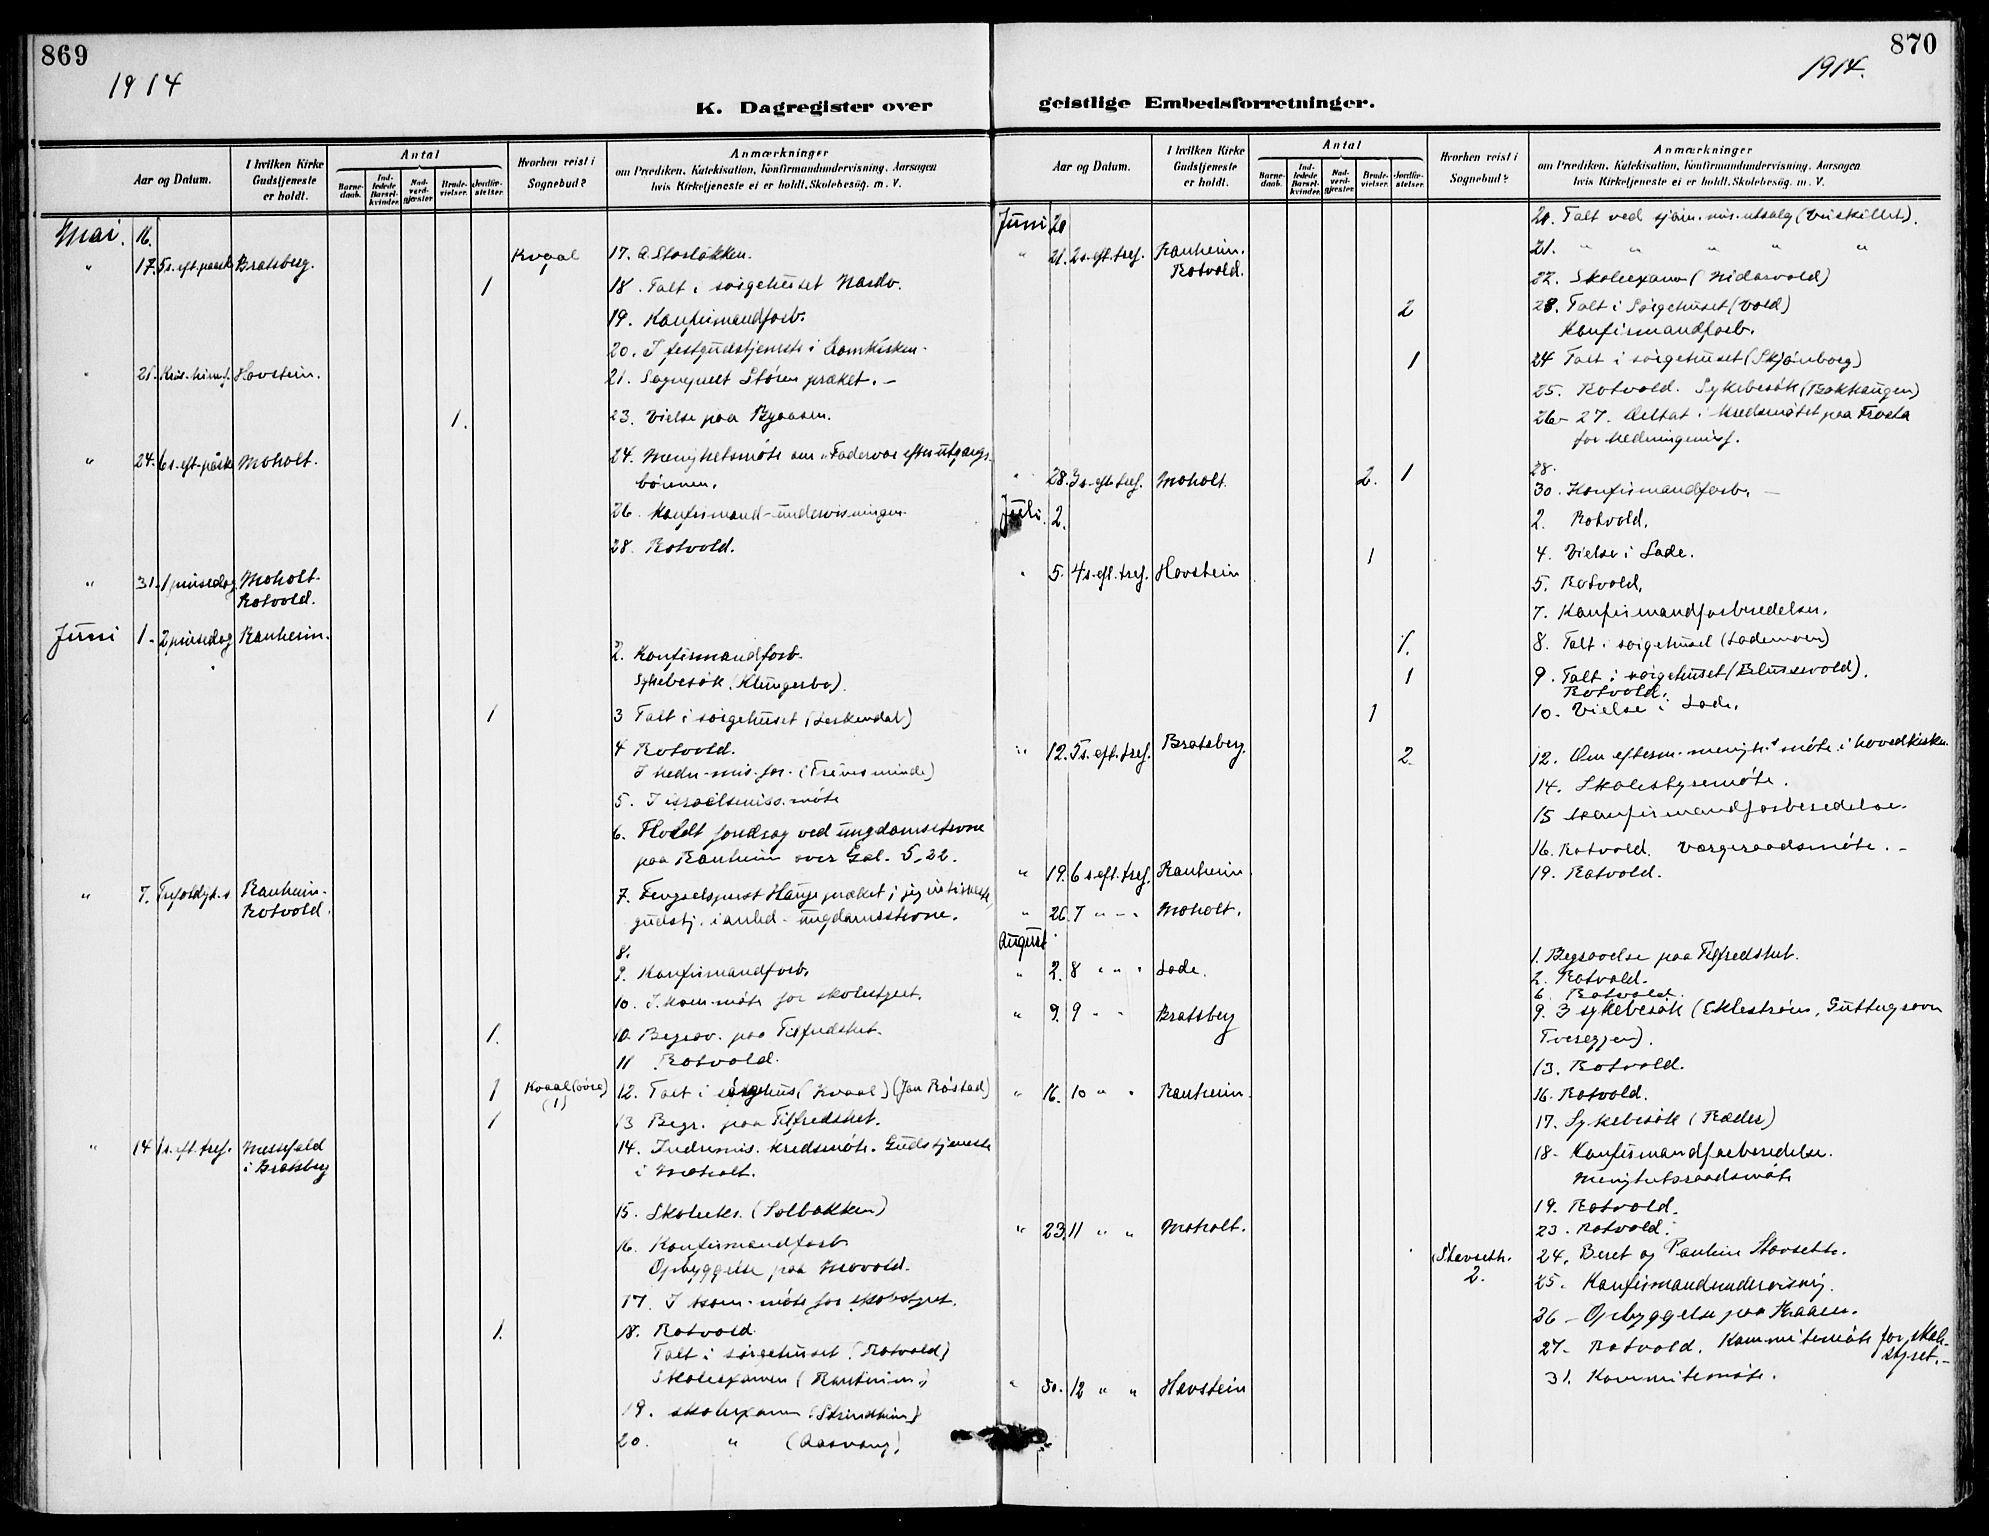 869
1914
K. Dagregister over
Aar og Datum.
I hvilken Kirke Gudstjeneste er holdt.
Antal
Barne-daab.
Ind-ledede Barsel-kvinder.
Nad-verd-gjæster.
Brude-vielser.
Jordfæ-stelser.
Hvorhen reist i Sognebud?
Anmærkninger
om Prædiken, Katekisation, Konfirmandundervisning, Aarsagen
hvis Kirketjeneste ei er holdt, Skolebesøg. m. V.
Mai. 16.
" 17. 5 s. eft. paaske Bratsberg. Kvaal 1 17. A. Storløkken.
1 18. Talt i sørgehuset Nardo.
19. Konfirmandforb.
20. I festgudstjeneste i Domkirken.
" 21. Kris. himf. Havstein. 21. Sogneprest Støren præket. -
1. 23. Vielse paa Byaasen.
" 24. 6 s. eft. påske Moholt. 24. Menighetsmøte om "Fadervor efter utgangs-
bønnen.
26. Konfirmand-undervisningen.
28. Rotvold.
" 31. 1 pinsedag Moholt.
Rotvold.
Juni 1. 2 pinsedag Ranheim.
2. Konfirmandforb.
Sykebesøk (Klungerbo).
1 3 Talt i sørgehuset (Leskendal)
4 Rotvold.
I hedn-mis-for. (Frivesminde)
5. I israelsmiss. møte
6. Holdt foredrag ved ungdomsstevne
paa Ranheim over Gal. 5, 22.
" 7. Trefoldigh. s Ranheim.
Rotvold. 7. Fengselsprest Hauge præket
gudstj. i anled. ungdomsstevne.
8.
9. Konfirmandforb.
10. I kom-møte for skolestyret.
1. 10. Begrav. paa Tilfredshet.
11 Rotvold.
1 Kvaal (øvre) (1) 12. Talt i sørgehus (Kvaal) (Jon Røstad)
1 13 Begr. paa Tilfredshet.
" 14 1 s. eft. tref. Messefald
i Bratsberg 14. Indremis. kredsmøte. Gudstjeneste
i Moholt.
15. Skoleeks. (Solbakken)
16. Konfirmandforb.
Opbyggelse paa Movold.
17. I kom-møte for skolestyret.
1. 18. Rotvold
Talt i sørgehuset (Rotvold)
Skoleexamen (Ranheim)
19. skolexamen (Strindheim)
20. " (Aasvang)
870
1914.
geistlige Embedsforretninger.
Aar og Datum.
I hvilken Kirke Gudstjeneste er holdt.
Antal
Barne-daab.
Ind-ledede Barsel-kvinder.
Nad-verd-gjæster.
Brude-vielser.
Jordfæ-stelser.
Hvorhen reist i Sognebud?
Anmærkninger
om Prædiken, Katekisation, Konfirmandundervisning, Aarsagen
hvis Kirketjeneste ei er holdt, Skolebesøg. m. V.
Juni 20 20. Talt ved sjøm. mis. utsalg (Veiskillet).
" 21. 2 s. eft. tref. Ranheim.
Rotvold. 21. " " " " "
22. Skoleexamen (Nidarvold)
2 23. Talt i Sørgehuset (Vold)
Konfirmandforb.
1 24 Talt i sørgehuset (Skjønborg)
25. Rotvold. Sykebesøk (Bakhaugen)
26-27. Deltat i kredsmøtet paa Frosta
for hedningemisj.
" 28. 3 s. eft. tref. Moholt 2. 1 28.
30. Konfirmandforb. -
Juli. 2. 2. Rotvold.
1 4. Vielse i Lade.
" 5. 4 s. eft. tref. Havstein 5. Rotvold.
7. Konfirmandforberedelse.
1. 8. Talt i sørgehuset (Lademoen)
1 9. Talt i sørgehuset (Blussuvold).
Rotvold.
1 10. Vielse i Lade.
" 12. 5 s. eft. tref. Bratsberg. 2. 12. Om efterm. menigh.s møte i hovedkirken.
14. Skolestyremøte.
15 Konfirmandforberedelse.
16. Rotvold. Vergeraadsmøte. -
" 19. 6 s. eft. tref. Ranheim. 19. Rotvold.
" 26. 7 " - " Moholt.
August
1. Begravelse paa Tilfredshet.
" 2. 8 " " " Lade. 2. Rotvold.
6. Rotvold.
" 9. 9 " " Bratsberg 9. 3 sykebesøk (Eklestrøm,
Tvereggen).
13. Rotvold.
" 16. 10 " " Ranheim. 16. Rotvold.
17. Sykebesøk (Ræder)
18. Konfirmandforberedelse.
Menighetsraadsmøte
19. Rotvold.
" 23. 11 " " Moholt. 23. Rotvold.
Stavseth. 2. 24. Beret og Pauline Stavseth.
25. Konfirmandundervisning.
26 - Opbyggelse paa
27. Rotvold. Kommitemøte for skole-
styret. -
" 30. 12 " " Havstein 31. Kommitemøte.